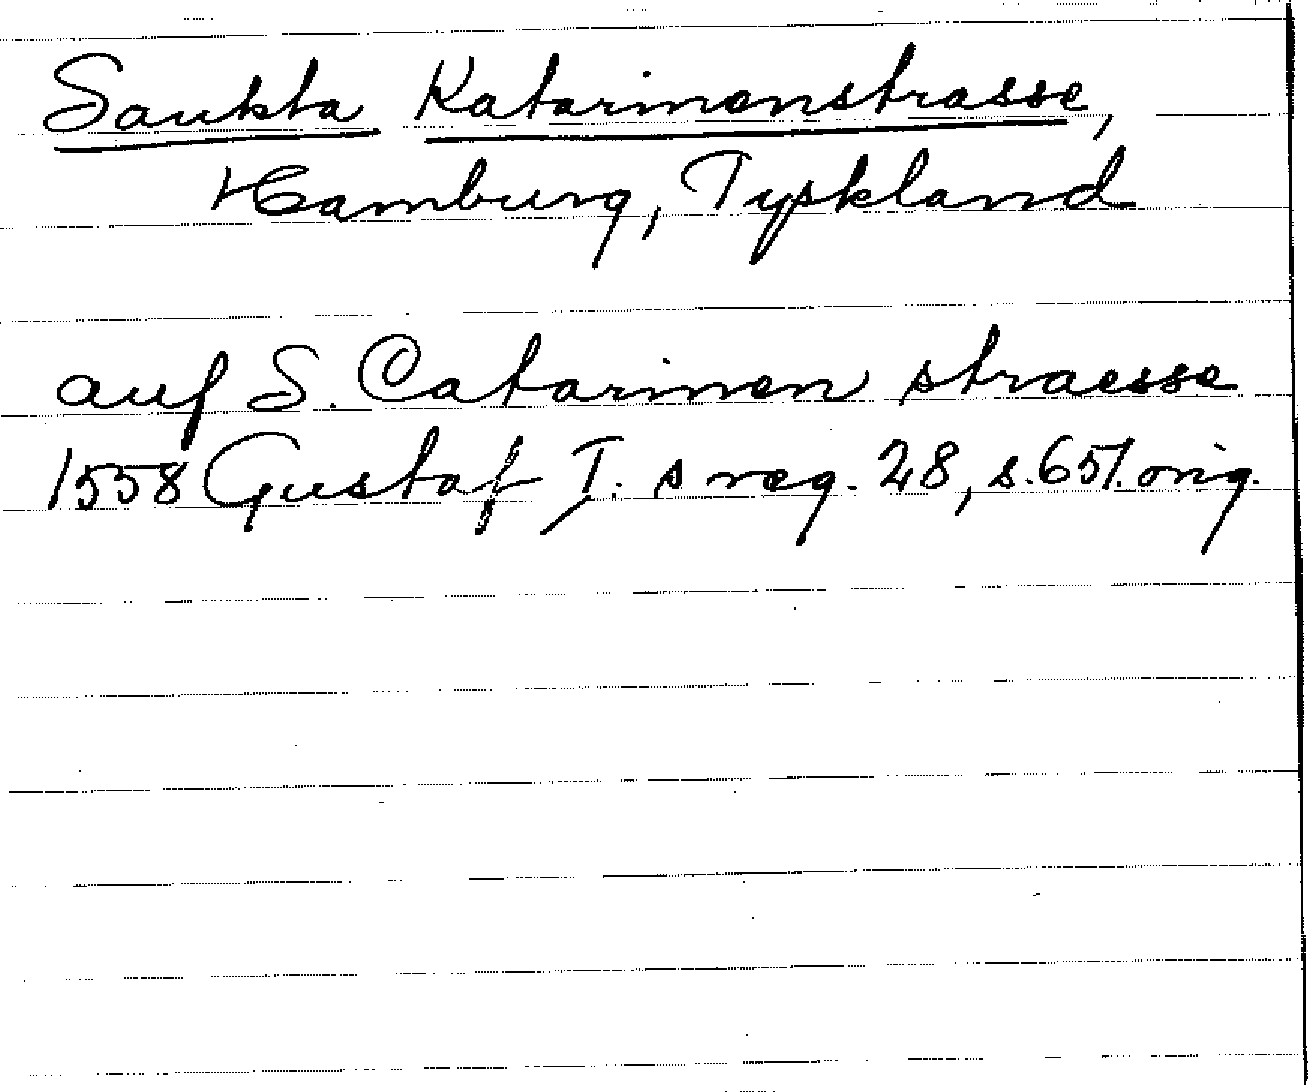 Sankta Katarinenstrasse,
Hamburg, Tyskland
auf S. Catarinen straesse
1558 Gustaf I. s reg. 28, s. 651. orig.